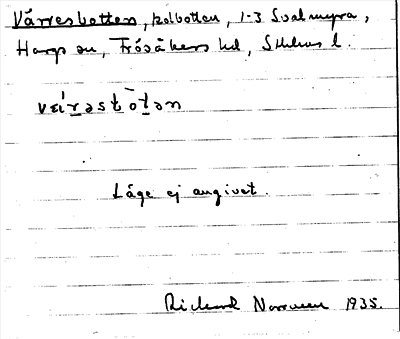 Värresbotten, kolbotten, 1-3 Svalmyra,
Hargs sn, Frösåkers hd, Sthlms l.
vɛi̍rəstòtən
Läge ej angivet.
Rickard Norrveen 1935.